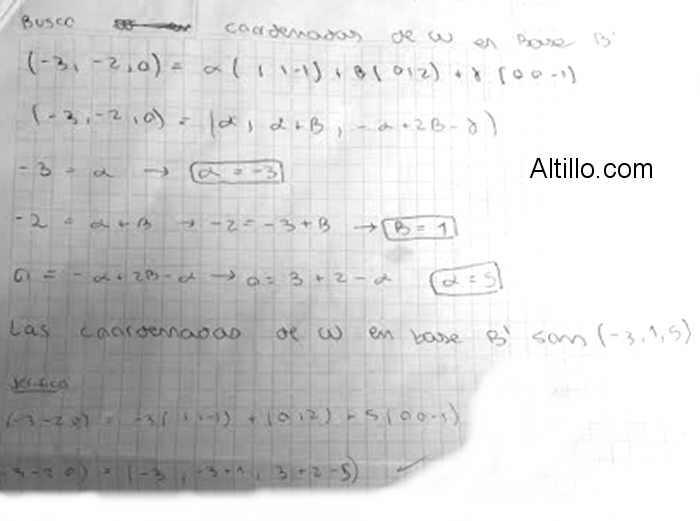 Busco coordenadas de w en Base B'
(-3, -2, 0) = α(1, 1 -1) + B(0 1 2) + γ(0 0 -1)
(-3, -2, 0) = (α, α+B, -α+2B-γ)
-3 = α → α = -3
Altillo.com
-2 = α+B → -2 = -3+B → B = 1
0 = -α+2B-α → 0 = 3+2-α α = 5
Las coordenadas de w en base B' son (-3, 1, 5)
Verifico
(-3 -2 0) = -3(1, 1, -1) + (0 1 2) + 5(0 0 -1)
-3 -2 0) = (-3, -3+1, 3+2-5) ✓